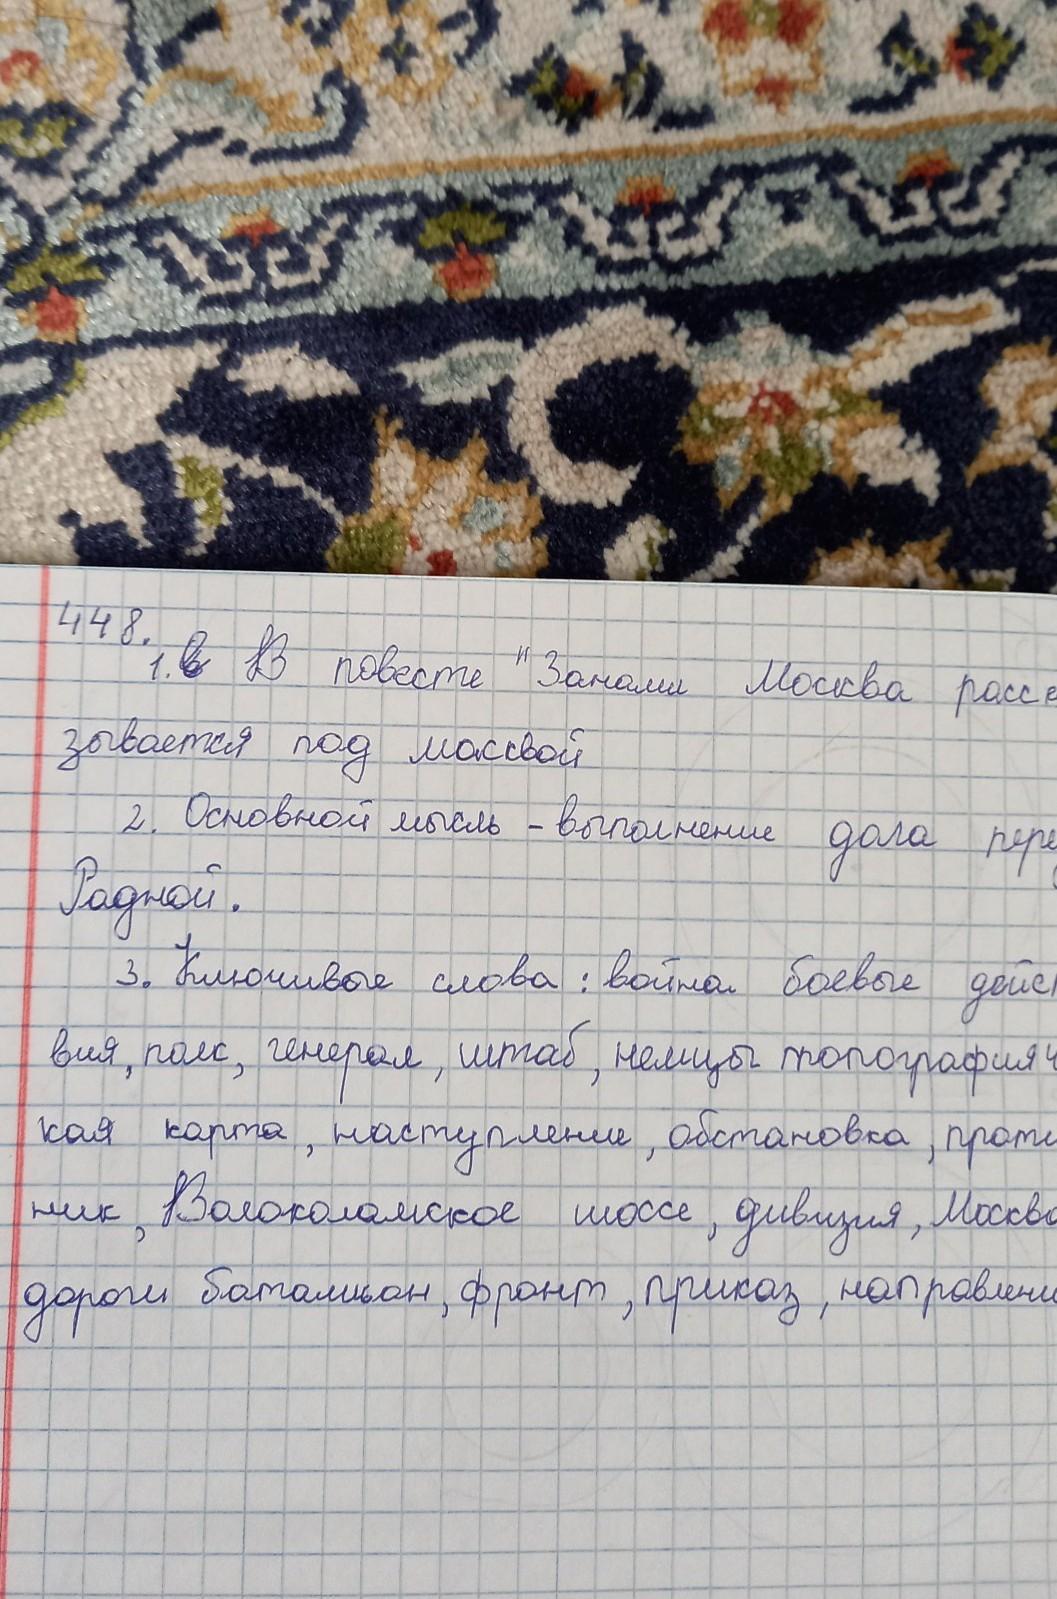 448.
1. В повесте "Занами Москва расск
зывается под массвой
2. Основной мысль - выполнение дола пере
Радной.
3. Ключивые слова: война боевые дейст
вия, полк, генерал, штаб, немцы топографияч
кая карта, наступление, обстановка, проти
ник, Волоколамское шоссе, дивизия, Москва
дороги баталььон, фронт, приказ, направлени